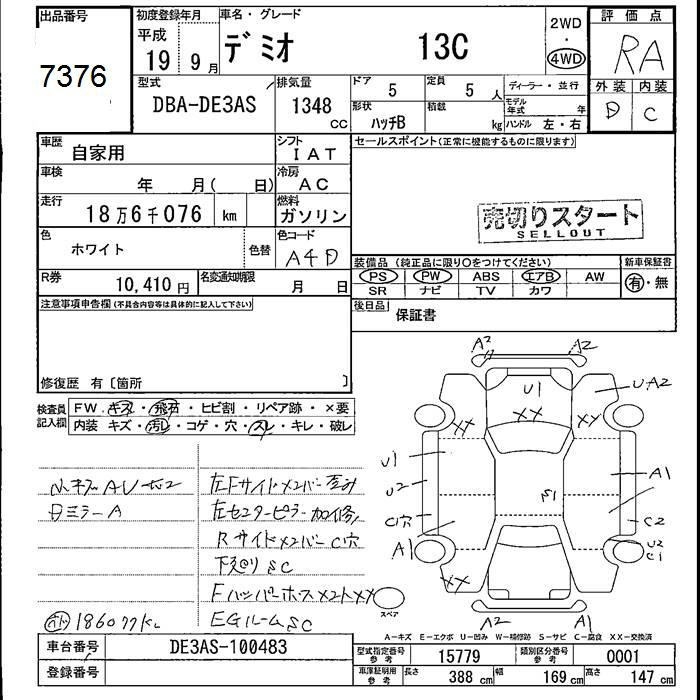 出品番号
7376
初度登録年月
平成
19 9月
車名・グレード
デミオ 13C
2WD
・
4WD
評価点
RA
外装 内装
D C
型式
DBA-DE3AS
排気量
1348
CC
ドア 5
定員 5 人
形状 ハッチB
積載 kg
ディーラー・並行
モデル年式 年
ハンドル 左・右
車歴 自家用
シフト IAT
セールスポイント(正常に機能するものに限ります)
車検 年 月( 日)
冷房 AC
走行 18万6千076 km
燃料 ガソリン
売切りスタート
SELLOUT
色 ホワイト 色替
色コード A4D
装備品(純正品に限り○をつけてください)
新車保証書
PS PW ABS エアB AW
有・無
SR ナビ TV カワ
R券 10,410円
名変通知期限 月 日
後日品 保証書
注意事項申告欄(不具合内容等は具体的に記入して下さい)
修復歴 有〔箇所 〕
検査員記入欄
FW キズ・飛石・ヒビ割・リペア跡・×要
内装 キズ・汚れ・コゲ・穴・スレ・キレ・破レ
小キズAU
日ミラーA
左Fサイドメンバー歪み
左センターピラー加修
RサイドメンバーC穴
下廻りSC
Fバンパーホース×2ト××
EGルームSC
186077K
A2 A2
U1
U.A2
XX XX XY
U1
U2
C穴
A1
S1
A1
C2
U2
C1
XX
A2 A1
スペア
A-キズ E-エクボ U-凹み W-補修跡 S-サビ C-腐食 XX-交換済
車台番号 DE3AS-100483
登録番号
型式指定番号 参考 15779
類別区分番号 参考 0001
車庫証明用 参考
長さ 388 cm
幅 169 cm
高さ 147 cm